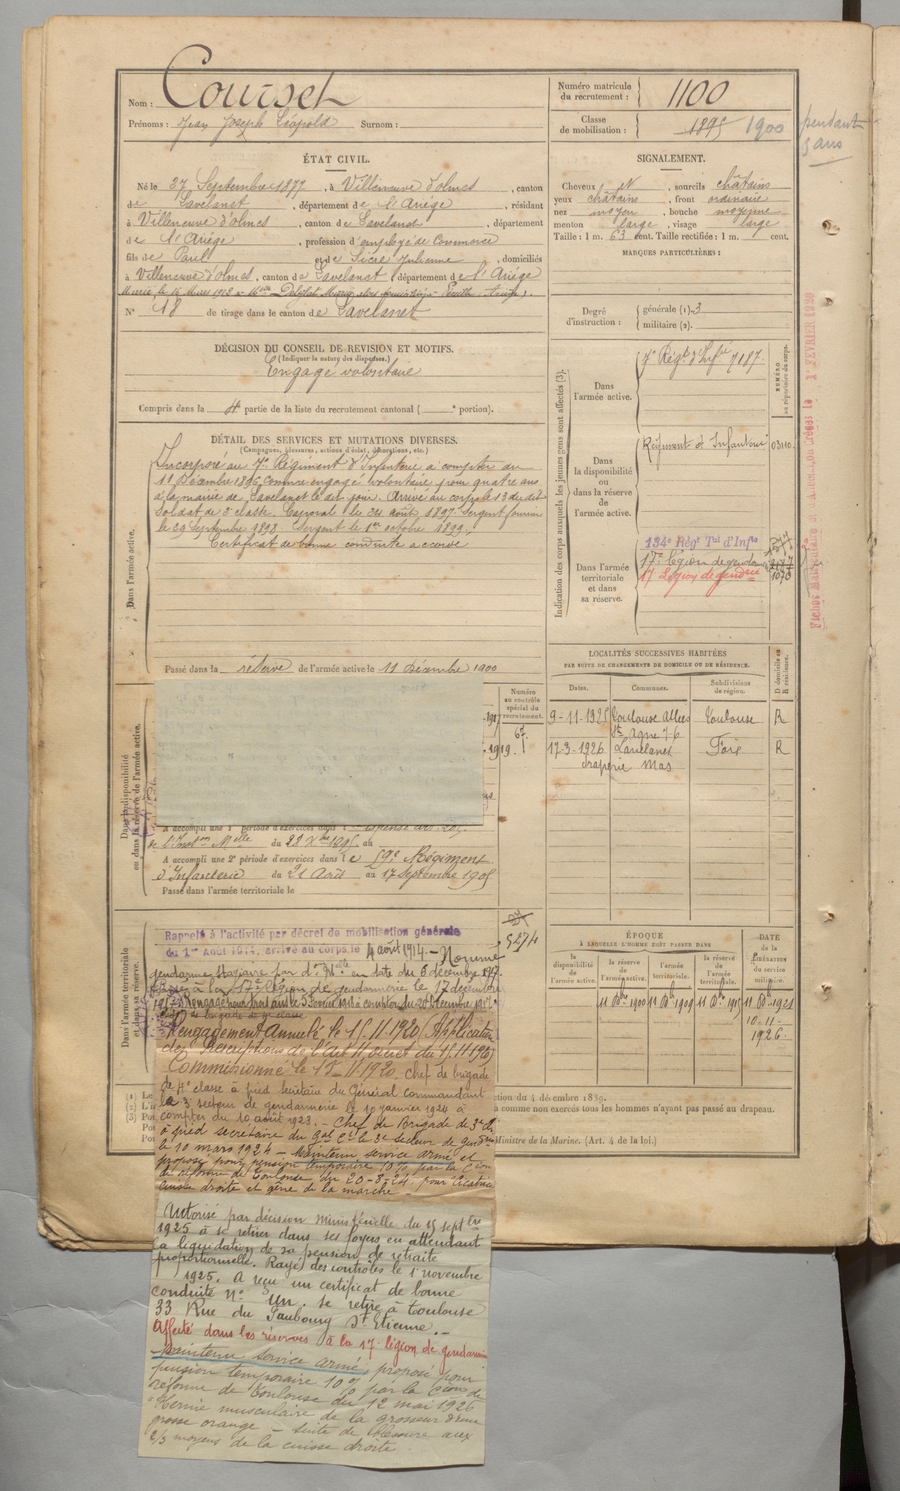 Nom : Courset
Prénoms : Jean Joseph Léopold Surnom :
Numéro matricule du recrutement : 1100
Classe de mobilisation : 1895 1900 pendant 5 ans
ÉTAT CIVIL.
Né le 27 Septembre 1877, à Villeneuve d'olmes, canton
de Lavelanet, département de l'Ariège, résidant
à Villeneuve d'olmes, canton de Lavelanet, département
de l'Ariège, profession d'employé de Commerce
fils de Paul et de Sicre Julienne, domiciliés
à Villeneuve d'olmes, canton de Lavelanet, département de l'Ariège
Marié le 15 Mars 1913 à
N° 18 de tirage dans le canton de Lavelanet
SIGNALEMENT.
Cheveux et sourcils châtains
yeux châtains, front ordinaire
nez moyen, bouche moyenne
menton large, visage large
Taille : 1 m. 63 cent. Taille rectifiée : 1 m. cent.
MARQUES PARTICULIÈRES :
Degré d'instruction : générale (1) 3
militaire (2).
DÉCISION DU CONSEIL DE REVISION ET MOTIFS.
(Indiquer la nature des dispenses.)
Engagé volontaire
Compris dans la 4e partie de la liste du recrutement cantonal ( e portion).
DÉTAIL DES SERVICES ET MUTATIONS DIVERSES.
(Campagnes, blessures, actions d'éclat, décorations, etc.)
Dans l'armée active.
Incorporé au 7e Régiment d'Infanterie à compter du
11 Décembre 1896, comme engagé volontaire pour quatre ans
à la mairie de Lavelanet le dit jour. Arrivé au corps le 13 du dit
Soldat de 2e classe. Caporal le 24 août 1897. Sergent fourrier
le 29 Septembre 1898. Sergent le 1er octobre 1899.
Certificat de bonne conduite accordé
Passé dans la réserve de l'armée active le 11 décembre 1900
Indication des corps auxquels les jeunes gens sont affectés (3).
Dans l'armée active. 7e Régt d'Infie 7187
NUMÉRO au répertoire du corps.
Dans la disponibilité ou dans la réserve de l'armée active. Régiment d'Infanterie 03110
Dans l'armée territoriale et dans sa réserve. 134e Régt Tal d'Infie
17e légion de gendarmie
17 Légion de gendie 1070
Fiches Matriculaires du Animation Créées le 1er FEVRIER 1926
LOCALITÉS SUCCESSIVES HABITÉES
PAR SUITE DE CHANGEMENTS DE DOMICILE OU DE RÉSIDENCE.
Dates. Communes. Subdivisions de région. D domicile ou R résidence.
9-11-1925 Toulouse Allées St Agne 76 Toulouse R
17-3-1926 Lavelanet Foix R
draperie Mas
Dans la disponibilité ou dans la réserve de l'armée active.
Numéro au contrôle spécial du recrutement.
A accompli une 1e période d'exercices dans
de l'Inst on Melle du 28 Xbre 1905 au
A accompli une 2e période d'exercices dans le 59e Régiment
d'Infanterie du 21 Août au 17 Septembre 1905
Passé dans l'armée territoriale le
Dans l'armée territoriale et dans sa réserve.
5274
Rappelé à l'activité par décret de mobilisation générale
du 1er Août 1914, arrivé au corps le 4 août 1914 - Nommé
gendarme stagiaire par don Mlle en date du 6 décembre 1917
Passé à la 17e légion de gendarmerie le 17 décembre
Rengagement Annulé le 15.11.1920 (Application
des Prescriptions de l'Art 11, décret du 15.11.1920)
Commissionné le 15-11-1920. Chef de brigade
de 4e classe à pied secrétaire du Général commandant
le 3e secteur de gendarmerie le 10 janvier 1924 à
compter du 10 août 1923. - Chef de Brigade de 3e cl
à pied secrétaire du gal Ct le 3e secteur de gendie
le 10 mars 1924 - Maintenu service armé et
proposé pour pension temporaire 10% par la Con
de réforme de Toulouse du 20-8-24 pour cicatrice
cuisse droite et gêne de la marche -
Autorisé par décision ministérielle du 15 septbre
1925 à se retirer dans ses foyers en attendant
la liquidation de sa pension de retraite
proportionnelle. Rayé des contrôles le 1 novembre
1925. A reçu un certificat de bonne
conduite N° Un. Se retire à Toulouse
33 Rue du Faubourg St Etienne. -
Affecté dans les réserves à la 17 légion de gendarmie
Maintenu service armé, proposé pour
pension temporaire 10% par la Con de
réforme de Toulouse du 12 mai 1926
"Hernie musculaire de la grosseur d'une
grosse orange - suite de blessure aux
2/3 moyens de la cuisse droite.
ÉPOQUE
À LAQUELLE L'HOMME DOIT PASSER DANS
la disponibilité de l'armée active. la réserve de l'armée active. l'armée territoriale. la réserve de l'armée territoriale.
DATE de la LIBÉRATION du service militaire.
11 Dbre 1900 11 Dbre 1909 11 Dbre 1915 11 Dbre 1921
10-11-1926
ction du 4 décembre 1889.
a comme non exercés tous les hommes n'ayant pas passé au drapeau.
Ministre de la Marine. (Art. 4 de la loi.)